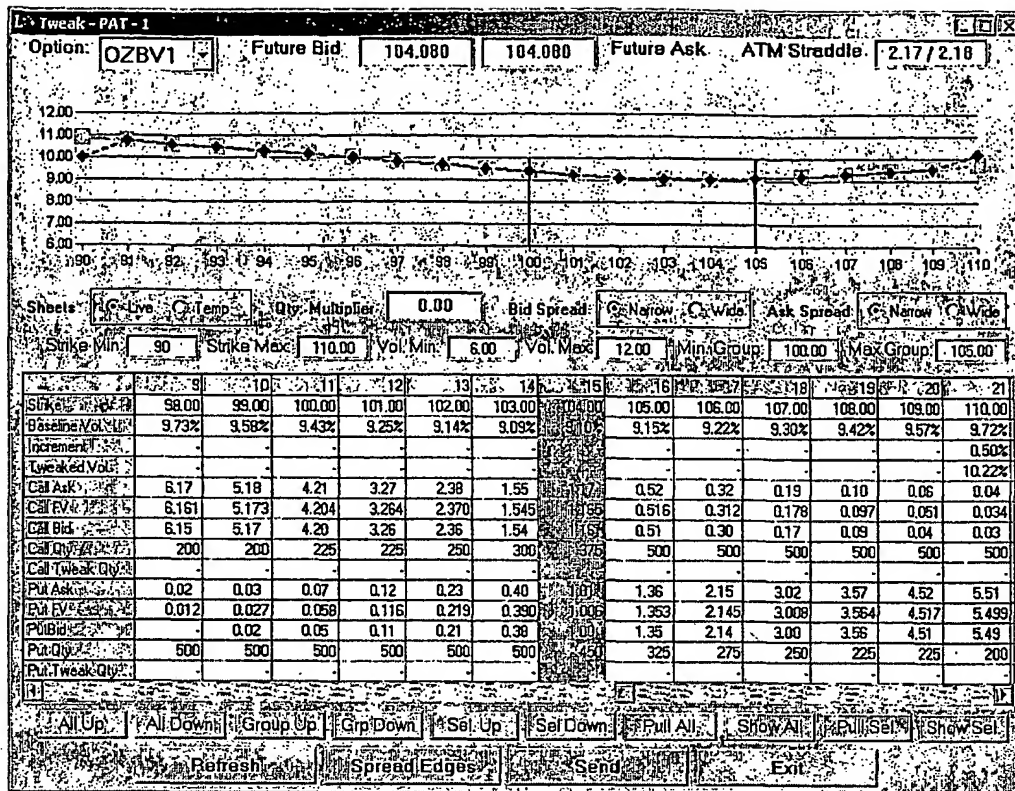 Tweak - PAT - 1
Option: OZBV1 Future Bid 104.080 104.080 Future Ask ATM Straddle 2.17 / 2.18
12.00
11.00
10.00
9.00
8.00
7.00
6.00
90 91 92 93 94 95 96 97 98 99 100 101 102 103 104 105 106 107 108 109 110
Sheets Live Temp Qty. Multiplier 0.00 Bid Spread Narrow Wide Ask Spread Narrow Wide
Strike Min 90 Strike Max 110.00 Vol. Min 6.00 Vol. Max 12.00 Min Group 100.00 Max Group 105.00
9 10 11 12 13 14 15 16 17 18 19 20 21
Strike 98.00 99.00 100.00 101.00 102.00 103.00 104.00 105.00 106.00 107.00 108.00 109.00 110.00
Baseline Vol. 9.73% 9.58% 9.43% 9.25% 9.14% 9.09% 9.15% 9.22% 9.30% 9.42% 9.57% 9.72%
Increment - - - - - - - - - - - 0.50%
Tweaked Vol. - - - - - - - - - - - 10.22%
Call Ask 6.17 5.18 4.21 3.27 2.38 1.55 0.52 0.32 0.19 0.10 0.06 0.04
Call FV 6.161 5.173 4.204 3.264 2.370 1.545 0.516 0.312 0.178 0.097 0.051 0.034
Call Bid 6.15 5.17 4.20 3.26 2.36 1.54 0.51 0.30 0.17 0.09 0.04 0.03
Call Qty 200 200 225 225 250 300 375 500 500 500 500 500 500
Call Tweak Qty - - - - - - - - - - - -
Put Ask 0.02 0.03 0.07 0.12 0.23 0.40 1.36 2.15 3.02 3.57 4.52 5.51
Put FV 0.012 0.027 0.058 0.116 0.219 0.390 1.006 1.353 2.145 3.008 3.564 4.517 5.499
Put Bid - 0.02 0.05 0.11 0.21 0.38 1.35 2.14 3.00 3.56 4.51 5.49
Put Qty 500 500 500 500 500 500 450 325 275 250 225 225 200
Put Tweak Qty - - - - - - - - - - - -
All Up All Down Group Up Grp Down Sel. Up Sel Down Pull All Show All Pull Sel Show Sel
Refresh Spread Edges Send Exit